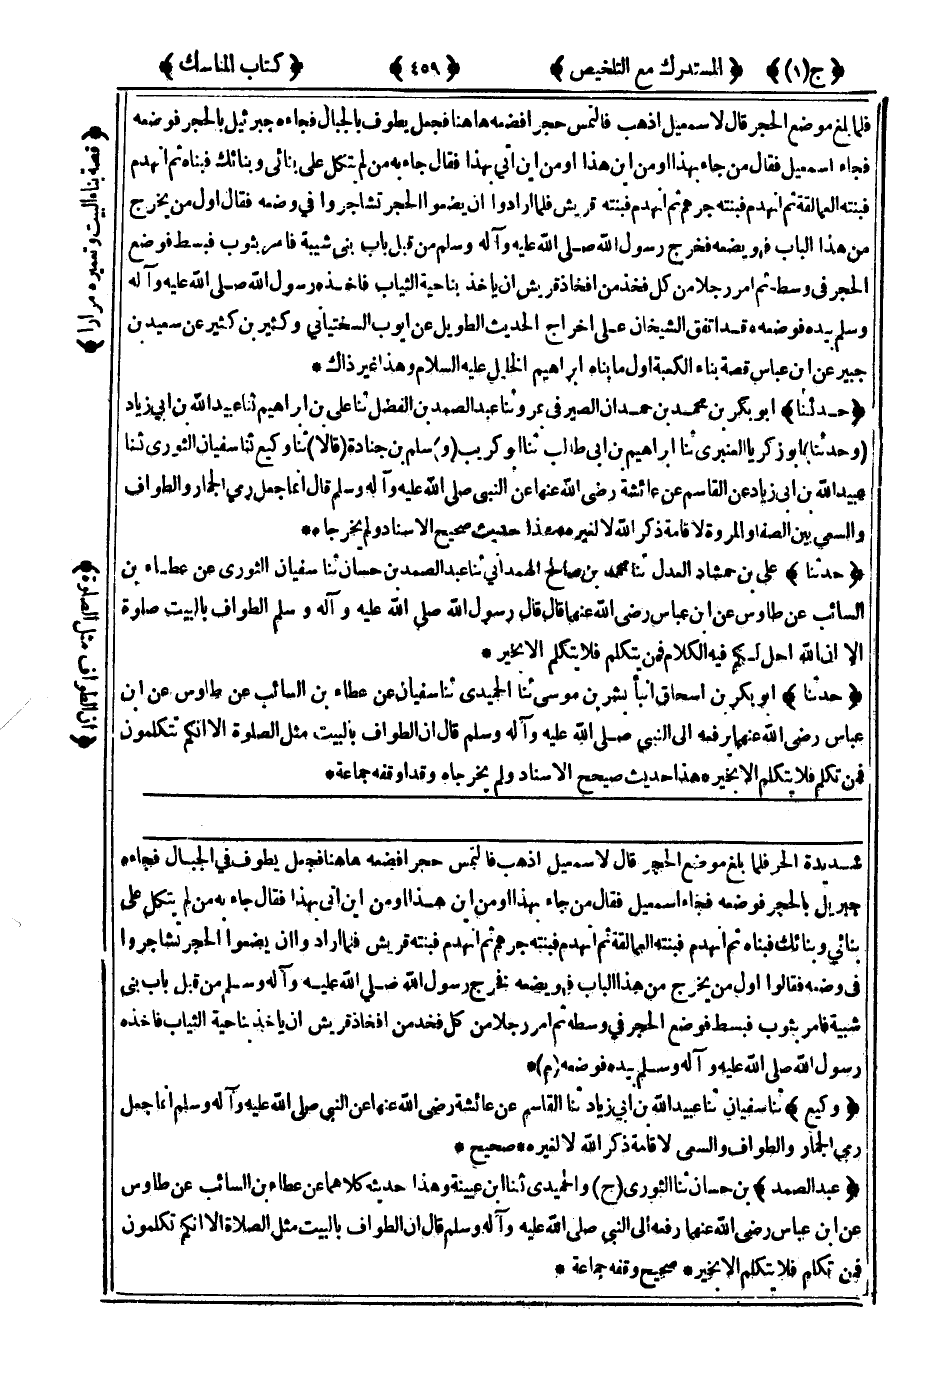 ﴿ ج (١) ﴾ ﴿ المستدرك مع التلخيص ﴾ ﴿ ٤٥٩ ﴾ ﴿ كتاب المناسك ﴾
فلما بلغ موضع الحجر قال لاسمعيل اذهب فالتمس حجرا فضعه هاهنا فجعل يطوف بالجبال فجاءه جبرئيل بالحجر فوضعه
فجاء اسمعيل فقال من جاء بهذا او من اين هذا او من اين اتي بهذا فقال جاء به من لم يتكل على بنائى وبنائك فبناه ثم انهدم
فبنته العمالقة ثم انهدم فبنته جرهم ثم انهدم فبنته قريش فلما ارادوا ان يضعوا الحجر تشاجروا في وضعه فقال اول من يخرج
من هذا الباب فهو يضعه فخرج رسول الله صلى الله عليه وآله وسلم من قبل باب بنى شيبة فامر بثوب فبسط فوضع
الحجر فى وسطه ثم امر رجلا من كل فخذ من افخاذ قريش ان ياخذ بناحية الثياب فاخذه رسول الله صلى الله عليه وآله
وسلم بيده فوضعه * قد اتفق الشيخان على اخراج الحديث الطويل عن ايوب السختياني وكثير بن كثير عن سعيد بن
جبير عن ابن عباس قصة بناء الكعبة اول ما بناه ابراهيم الخليل عليه السلام وهذا غير ذاك *
﴿ حدثنا ﴾ ابو بكر بن محمد بن حمدان الصيرفى بمرو ثنا عبد الصمد بن الفضل ثنا على بن ابراهيم ثنا عبيد الله بن ابي زياد
(وحدثنا) ابو زكريا العنبرى ثنا ابراهيم بن ابى طالب ثنا ابو كريب (و) سلم بن جنادة (قالا) ثنا وكيع ثنا سفيان الثورى ثنا
عبيد الله بن ابى زياد عن القاسم عن عائشة رضى الله عنها عن النبى صلى الله عليه وآله وسلم قال انما جعل رمي الجمار والطواف
والسعى بين الصفا والمروة لاقامة ذكر الله لا لغيره * هذا حديث صحيح الاسناد ولم يخرجاه *
﴿ حدثنا ﴾ على بن حمشاد العدل ثنا محمد بن صالح الهمدانى ثنا عبد الصمد بن حسان ثنا سفيان الثورى عن عطاء بن
السائب عن طاوس عن ابن عباس رضى الله عنهما قال قال رسول الله صلى الله عليه وآله وسلم الطواف بالبيت صلوة
الا ان الله احل لكم فيه الكلام فمن يتكلم فلا يتكلم الا بخير *
﴿ حدثنا ﴾ ابو بكر بن اسحاق انبأ بشر بن موسى ثنا الحميدى ثنا سفيان عن عطاء بن السائب عن طاوس عن ابن
عباس رضى الله عنهما يرفعه الى النبي صلى الله عليه وآله وسلم قال ان الطواف بالبيت مثل الصلوة الا انكم تتكلمون
فمن تكلم فلا يتكلم الا بخير * هذا حديث صيحح الاسناد ولم يخرجاه وقد اوقفه جماعة *
شديدة الحر فلما بلغ موضع الحجر قال لاسمعيل اذهب فالتمس حجرا فضعه هاهنا فجعل يطوف في الجبال فجاءه
جبريل بالحجر فوضعه فجاء اسمعيل فقال من جاء بهذا او من اين هذا او من اين اتى بهذا فقال جاء به من لم يتكل على
بنائي وبنائك فبناه ثم انهدم فبنته العمالقة ثم انهدم فبنته جرهم ثم انهدم فبنته قريش فلما اراد وا ان يضعوا الحجر تشاجروا
فى وضعه فقالوا اول من يخرج من هذا الباب فهو يضعه فخرج رسول الله صلى الله عليه وآله وسلم من قبل باب بنى
شيبة فامر بثوب فبسط فوضع الحجر في وسطه ثم امر رجلا من كل فخد من افخاذ قريش ان ياخذ بناحية الثياب فاخذه
رسول الله صلى الله عليه وآله وسلم بيده فوضعه (م) *
﴿ وكيع ﴾ ثنا سفيان ثنا عبيد الله بن ابي زياد ثنا القاسم عن عائشة رضى الله عنها عن النبي صلى الله عليه وآله وسلم انما جعل
رمي الجمار والطواف والسعى لاقامة ذكر الله لا لغيره * صحيح *
﴿ عبد الصمد ﴾ بن حسان ثنا الثورى (ح) والحميدى ثنا ابن عيينة وهذا حديثه كلاهما عن عطاء بن السائب عن طاوس
عن ابن عباس رضى الله عنهما رفعه الى النبي صلى الله عليه وآله وسلم قال ان الطواف بالبيت مثل الصلاة الا انكم تكلمون
فمن تكلم فلا يتكلم الا بخير * صحيح وقفه جماعة *
﴿ قصة بناء البيت وتعميره مرارا ﴾
﴿ ان الطواف مثل الصلوة ﴾